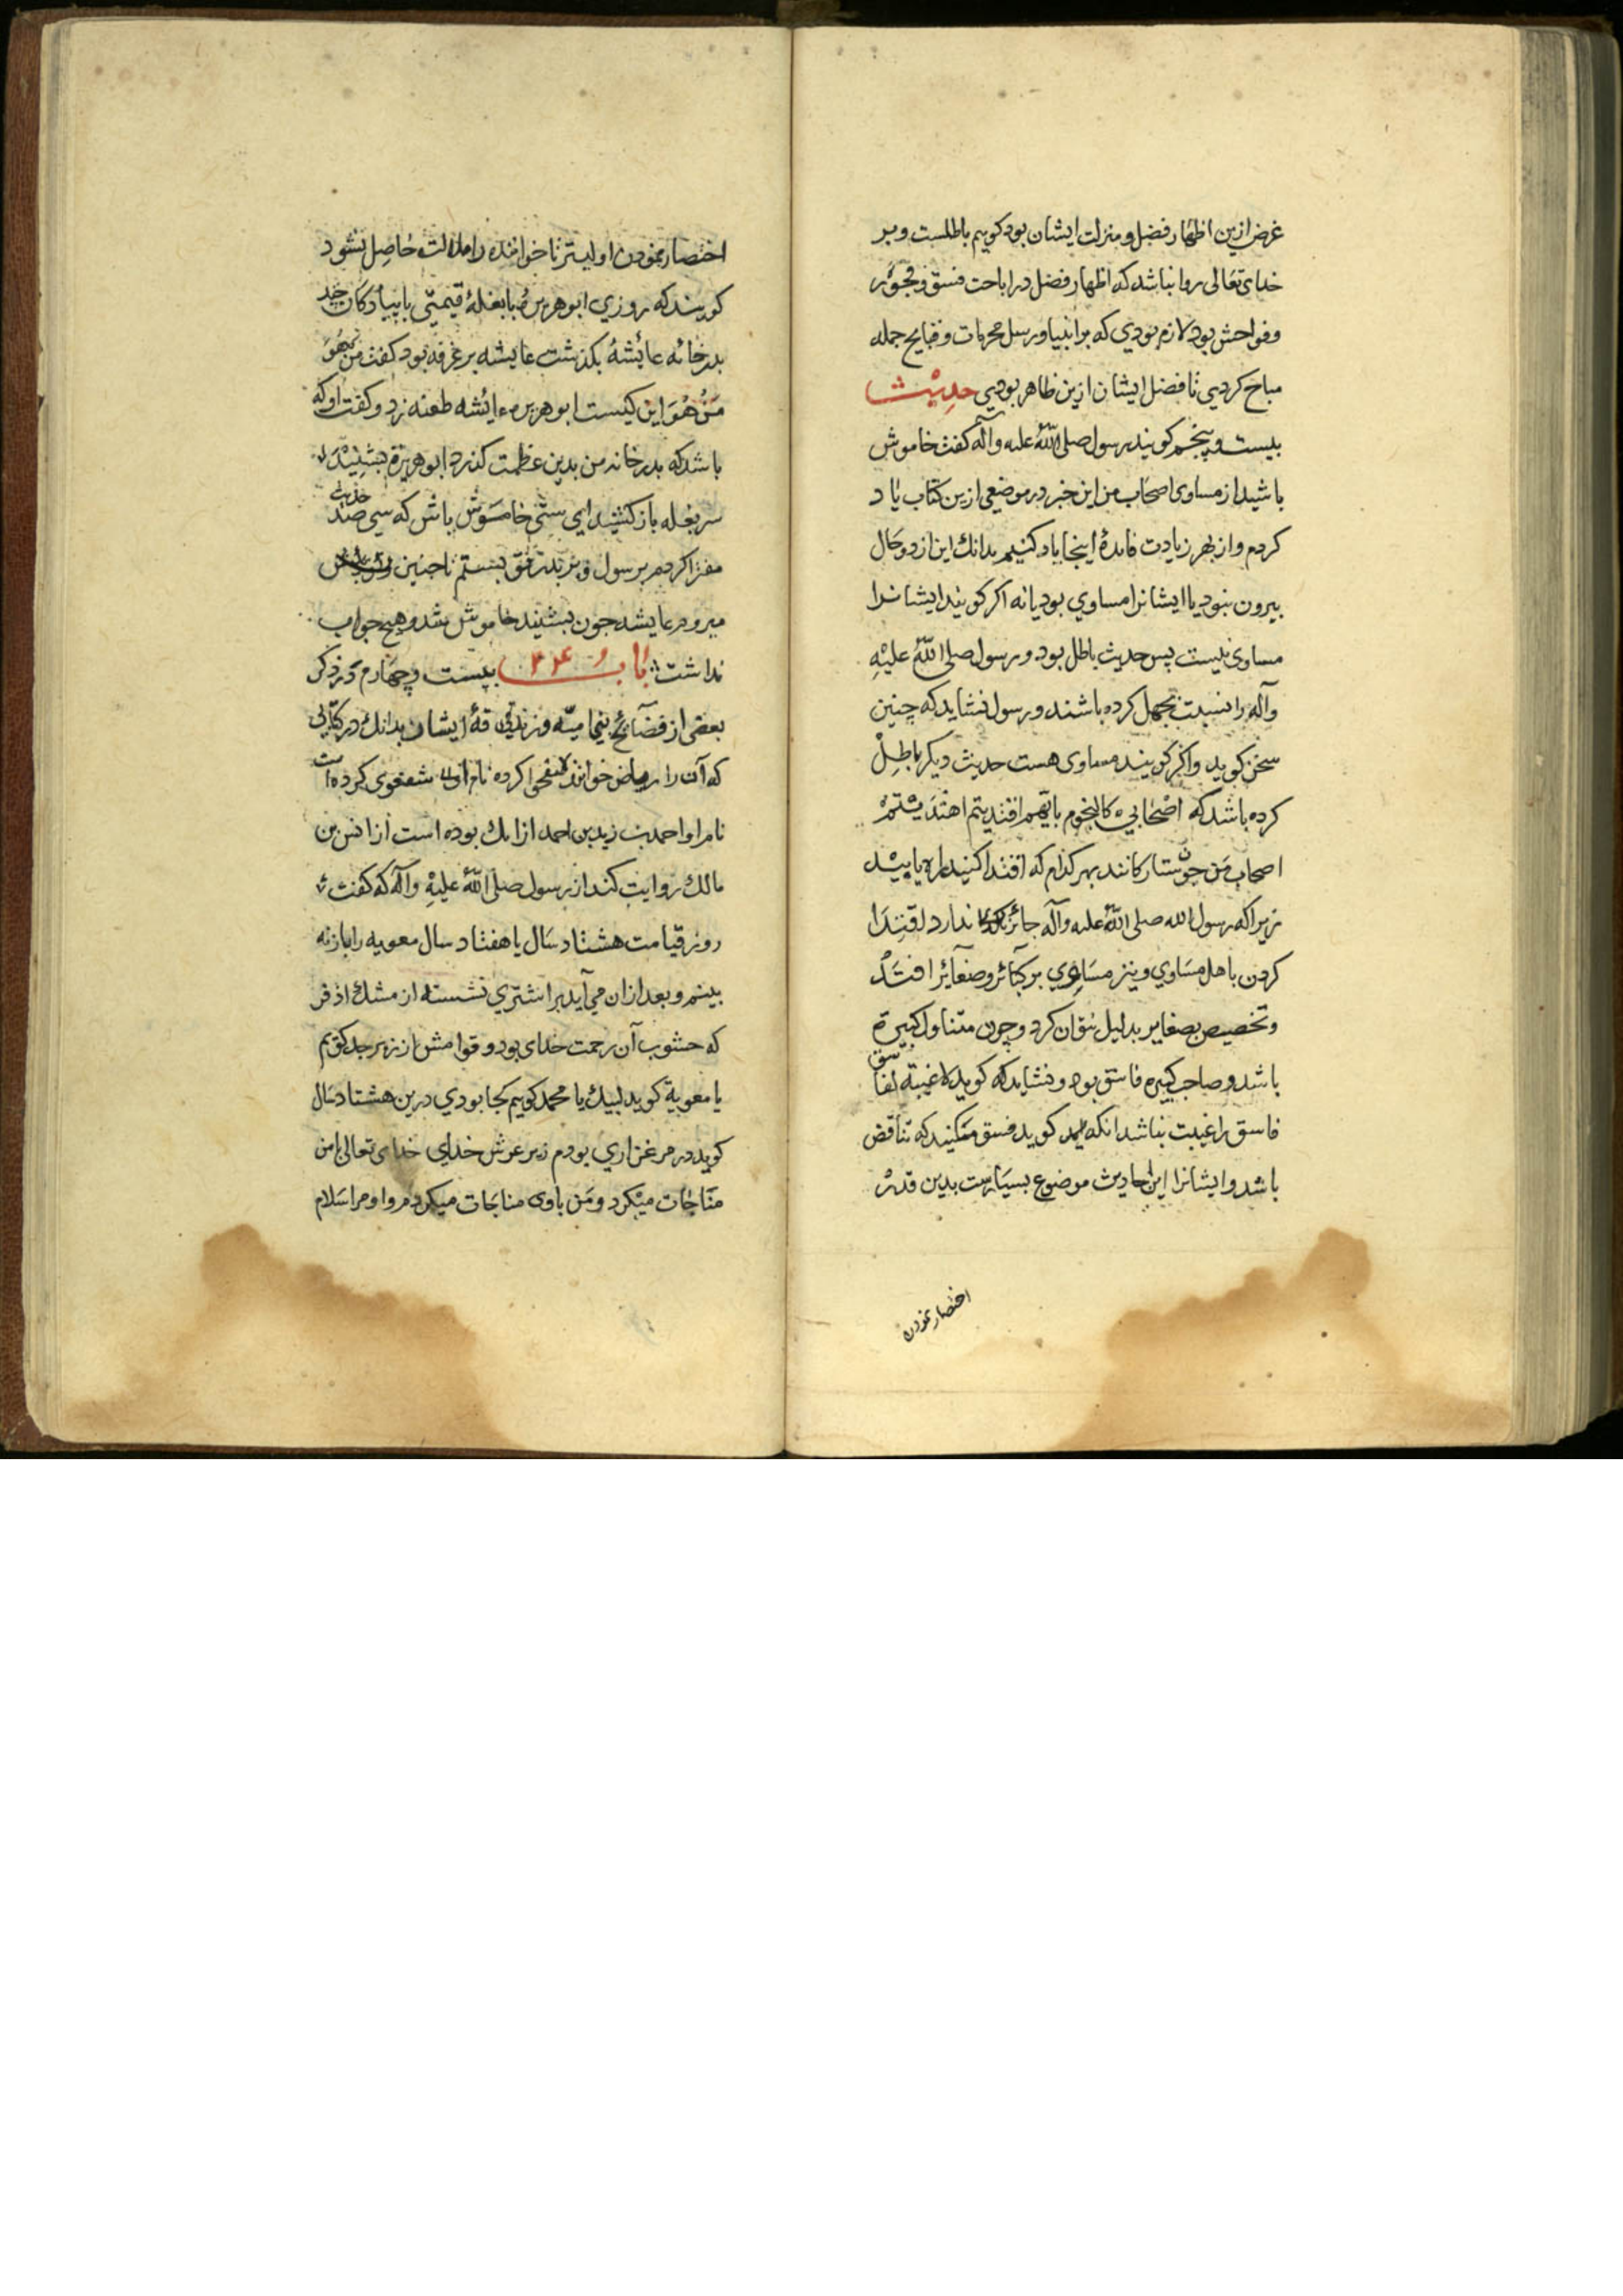 غرض ازین اظهار فضل و منزلت ایشان بود کویم باطلست و بر
خدای تعالی روا نباشد که اظهار فضل در اباحت فسق و فجور
و فواحش بود لازم بودی که بر انبیا و رسل محرمات و قبایح جمله
مباح کردی تا فضل ایشان ازین ظاهر بودی حدیث
بیست و پنجم کویند رسول صلی اللّه علیه وآله کفت خاموش
باشید از مساوی اصحاب من این خبر در موضعی ازین کتاب یاد
کردم و از بهر زیادت فایدهٔ اینجا یاد کنیم بدانك این از دو حال
بیرون نبود یا ایشانرا مساوی بود یا نه اکر کویند ایشانرا
مساوی نیست پس حدیث باطل بود و رسول صلی اللّه علیه
وآله را نسبت بجهل کرده باشند و رسول نشاید که چنین
سخن کوید و اکر کویند مساوی هست حدیث دیکر باطل
کرده باشد که اصحابی کالنجوم بایهم اقتدیتم اهتدیتم
اصحاب من چون ستارکانند بهر کدام که اقتدا کنید راه یابید
زیرا که رسول الله صلی اللّه علیه وآله جائز ندارد اقتدا
کردن باهل مساوی و نیز مساوی بر کبائر و صغائر افتد
و تخصیص بصغایر بدلیل توان کرد و چون متناول کبیرة
باشد و صاحب کبیره فاسق بود و نشاید که کوید لا غیبة لفاسق
فاسق را غیبت نباشد انکه کوید فسق مکنید که تناقض
باشد و ایشانرا این احادیث موضوع بسیارست بدین قدر
اختصار نمودن
اختصار نمودن اولیتر تا خواننده را ملالت حاصل نشود
کویند که روزی ابو هریره با بغلهٔ قیمتی با پیادکان چند
بدر خانه عائشه بکذشت عایشه بر غرفه بود کفت من هو
من هو این کیست ابو هریره عایشه طعنه زد و کفت او که
باشد که بدر خانه من بدین عظمت کذرد ابو هریرة بشنید
سر بغله باز کشید ای ستی خاموش باش که سی صد حدیث
مفترا کردم بر رسول و بر پدرت بستم تا چنین
میروم عایشه چون بشنید خاموش شد و هیچ جواب
نداشت باب ۲۴ بیست و چهارم در ذکر
بعضی از فضائح بنی امیّه و زندقهٔ ایشان بدانك در کتابی
که آن را ریاض خوانند نام او شفعوی کرده است
نام او احمد بن زید بن احمد از ایك بوده است از انس بن
مالك روایت کند از رسول صلی اللّه علیه وآله که کفت
روز قیامت هشتاد سال یا هفتاد سال معویه را باز نه
بینم و بعد از ان می آید بر اشتری نشسته از مشك اذفر
که حشوب آن رحمت خدای بود و قوامش از زبرجد کویم
یا معویة کوید لبیك یا محمد کویم کجا بودی درین هشتاد سال
کوید در مرغزاری بودم زیر عرش خدای خدای تعالی با من
مناجات میکرد و من باوی مناجات میکردم و او مرا سلام